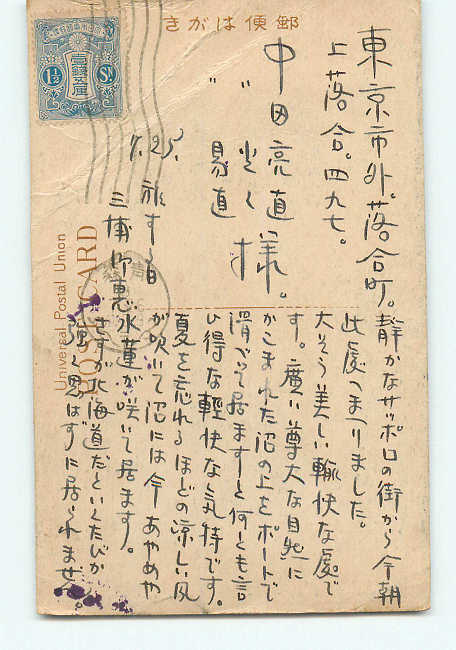 きがは便郵
1½ Sn
壹錢五厘
Universal Postal Union
POST CARD
東京市外。落合町。
上落合。四九七。
中田亮直様。
〃易直
7.25.
旅する日
三
静かなサッポロの街から今朝
此處へまゐりました。
大そう美しい愉快な處で
す。廣い尊大な自然に
かこまれた沼の上をボートで
滑べって居ますと何とも言
ひ得な軽快な気持です。
夏を忘れるほどの涼しい風
が吹いて沼には今あやめや
水蓮が咲いて居ます。
さすが北海道だといくたびか
思はずに居られません。